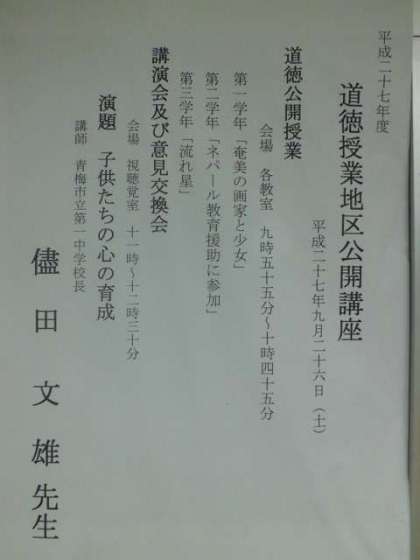 平成二十七年度
道徳授業地区公開講座
平成二十七年九月二十六日(土)
道徳公開授業
会場 各教室 九時五十五分~十時四十五分
第一学年「奄美の画家と少女」
第二学年「ネパール教育援助に参加」
第三学年「流れ星」
講演会及び意見交換会
会場 視聴覚室 十一時~十二時三十分
演題 子供たちの心の育成
講師 青梅市立第一中学校長
儘田 文雄先生